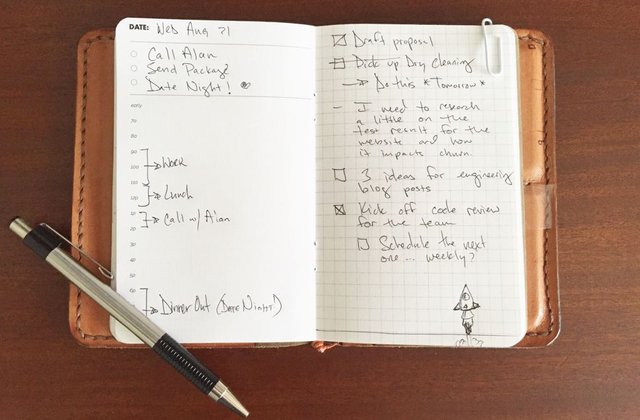 DATE: Wed Aug 21
Call Alan
Send Package
Date Night!
early
70
80
90
Work
100
110
Lunch
120
10
Call w/ Alan
20
30
40
50
60
Dinner Out (Date Night)
Draft proposal
Pick up Dry Cleaning
→ Do this *Tomorrow*
- I need to research
a little on the
test result for the
website and how
it impacts churn.
3 ideas for engineering
blog posts
Kick off code review
for the team
Schedule the next
one... weekly?